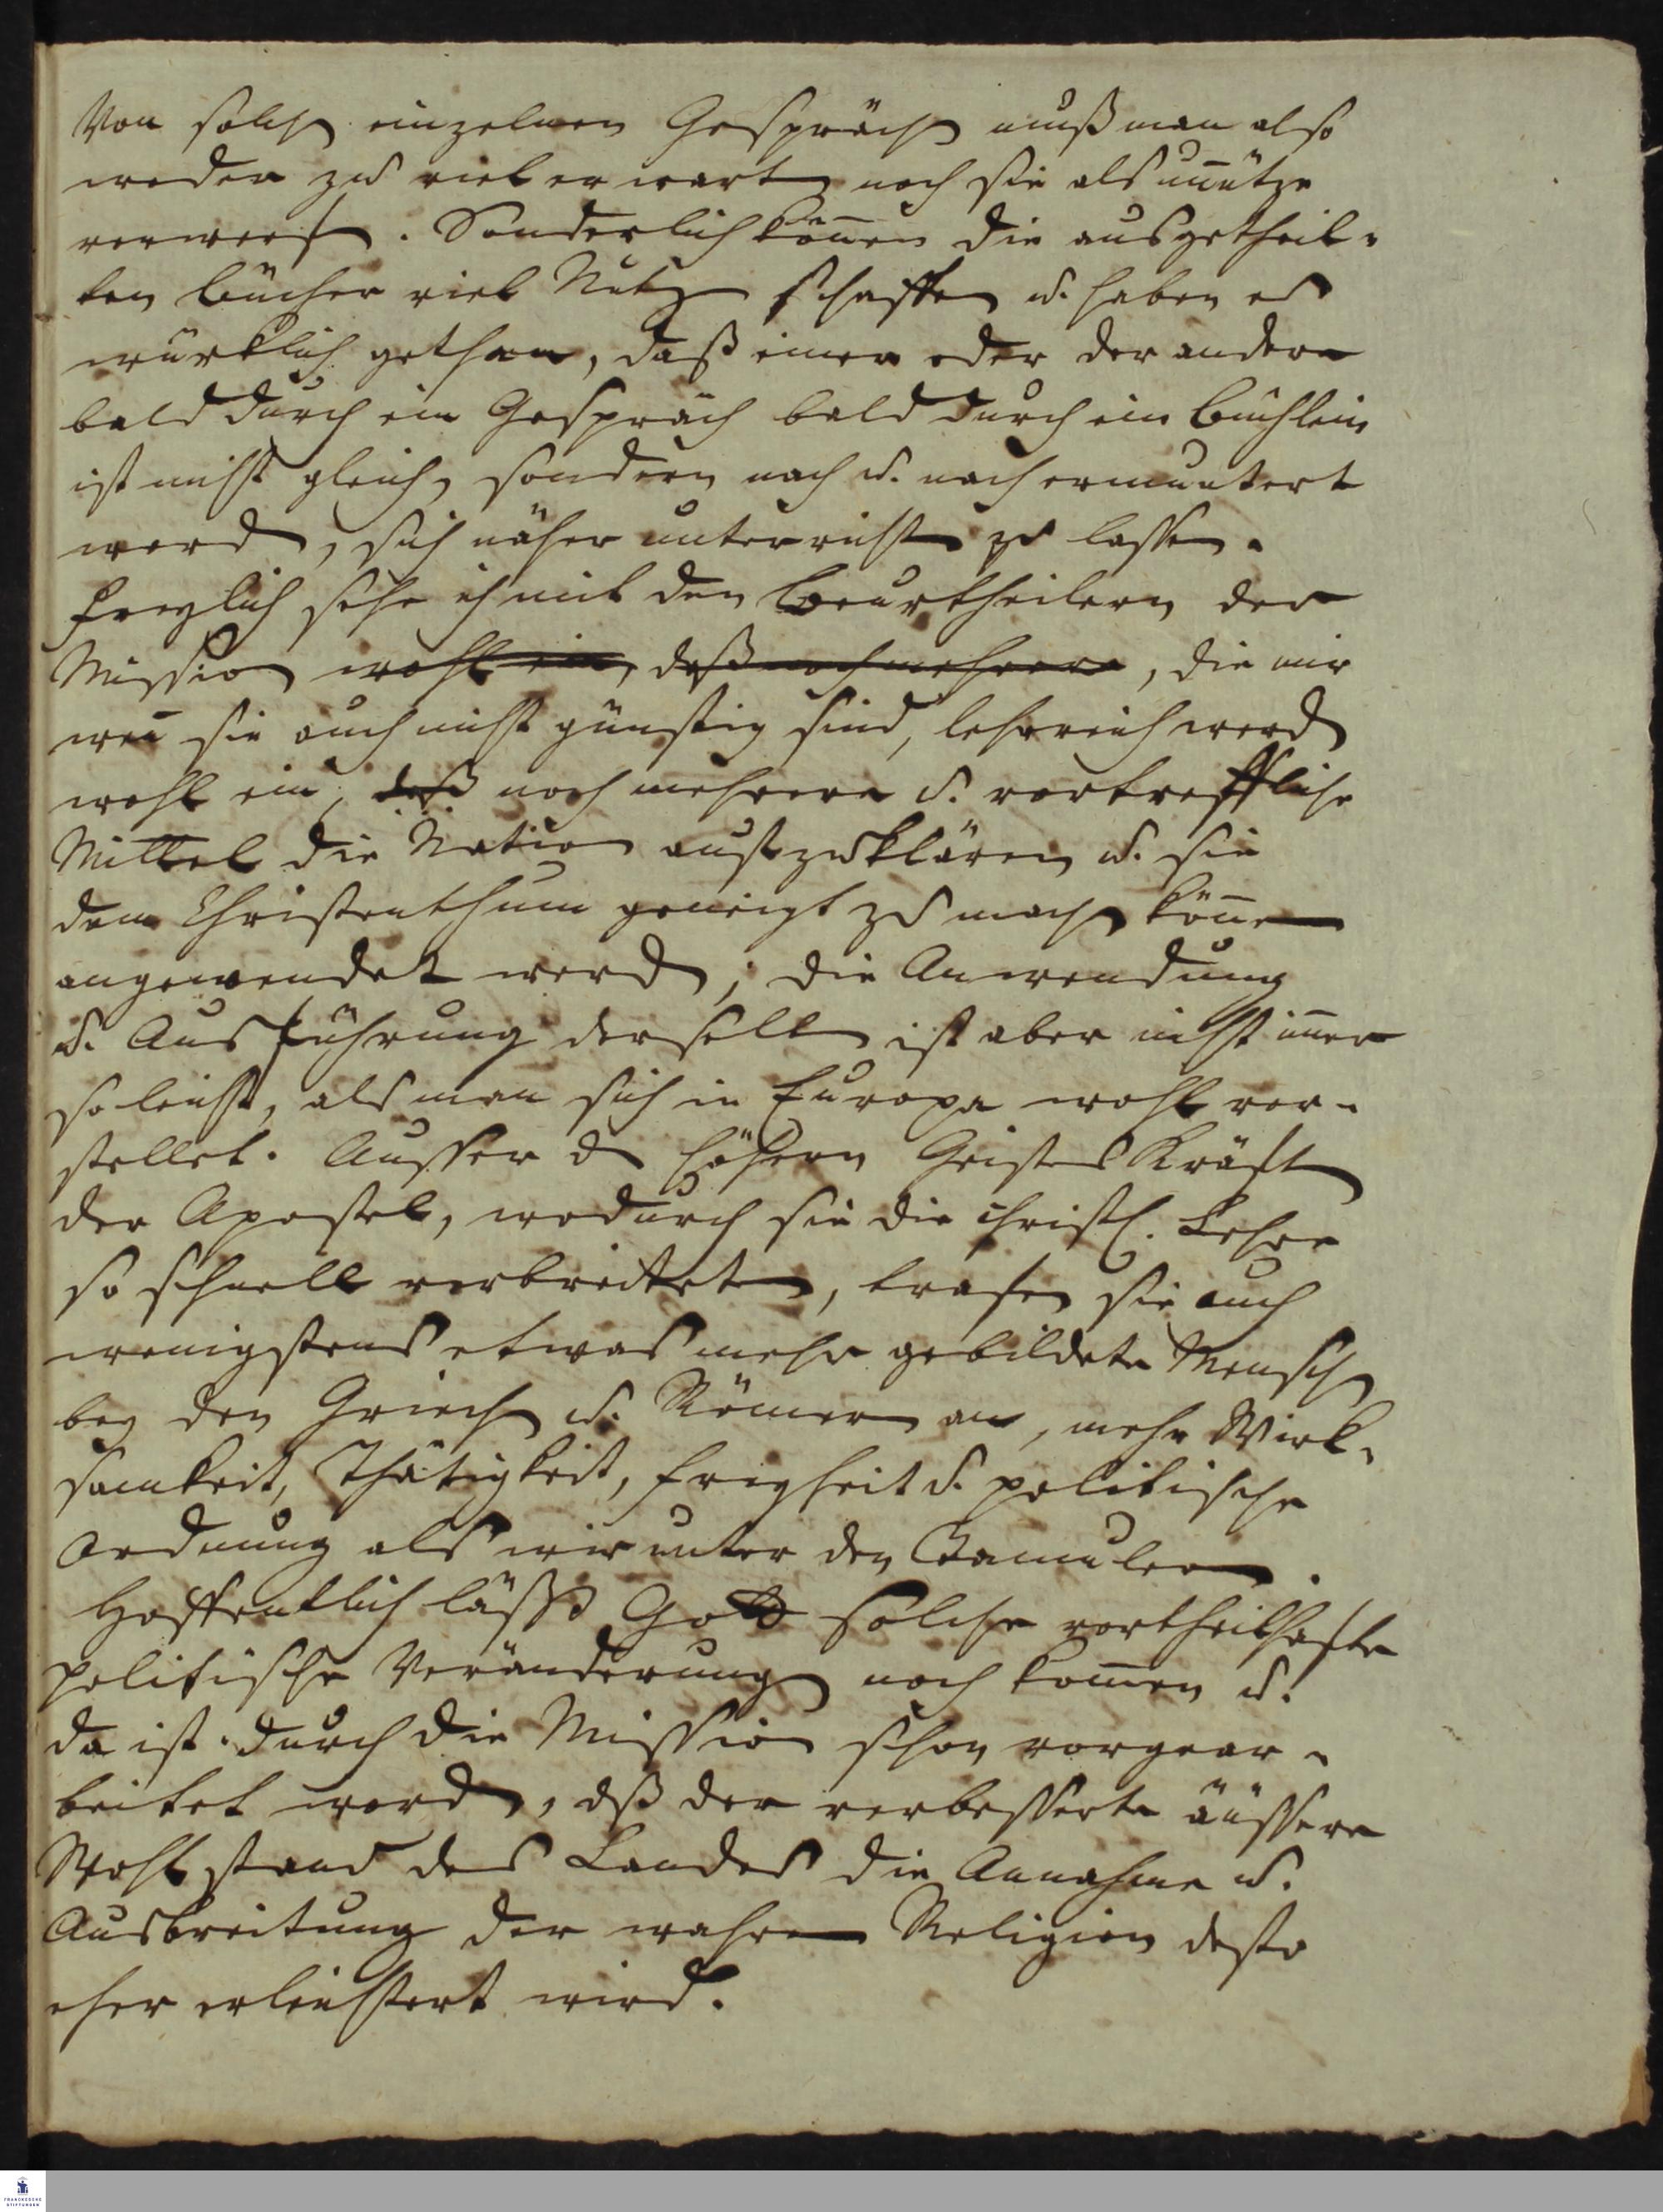 Von solchen einzelnen Gesprächen muß man also
weder zu viel erwarten noch sie als unnütze
verwerfen. Sonderlich können die ausgetheil-
ten Bücher viel Nutzen schaffen u. haben es
würklich gethan, daß einer oder der andere
bald durch ein Gespräch bald durch ein Büchlein
ist nicht gleich, sondern nach u. nach ermuntert
worden, sich näher unterrichten zu lassen.
Freylich sehe ich mit den Beurtheilern der
Mission wohl ein, daß noch mehrere, die mir
wenn sie auch nicht günstig sind, lehrreich werden
wohl ein, daß noch mehrere u. vortreffliche
Mittel die Nation aufzuklären u. sie
dem Christenthum geneigt zu machen können
angewendet werden; die Anwendung
u. Ausführung derselben ist aber nicht immer
so leicht, als man sich in Europa wohl vor-
stellet. Ausser den höhern Geistes Kräften
der Apostel, wodurch sie die christl. Lehre
so schnell verbreiteten, trafen sie auch
wenigstens etwas mehr gebildete Menschen
bey den Griechen u. Römern an, mehr Wirk-
samkeit, Thätigkeit, Freyheit u. politische
Ordnung als wir unter den Tamulern.
Hoffentlich läßt Gott solche vortheilhafte
politische Veränderungen noch kommen u.
da ist durch die Mission schon vorgear-
beitet worden, dß der verbesserte äussere
Wohlstand des Landes die Annahme u.
Ausbreitung der wahren Religion desto
eher erleichtert wird.
FRANCKESCHE
STIFTUNGEN